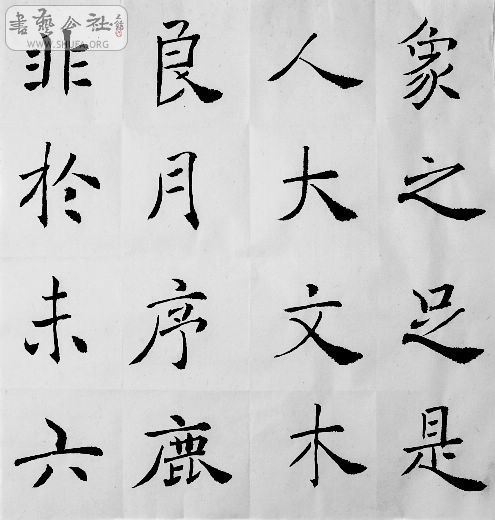 書藝公社
WWW.SHUFA.ORG
象之足是
人大文木
良月序鹿
非於未六